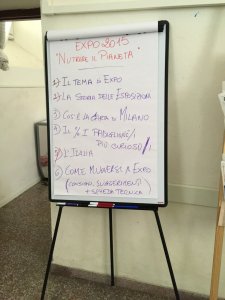 EXPO 2015
"NUTRIRE IL PIANETA"
1) IL TEMA DI EXPO
2) LA STORIA DELLE ESPOSIZIONI
3) COS'È LA CARTA DI MILANO
4) I PADIGLIONI
PIÙ CURIOSI
5) L'ITALIA
6) COME MUOVERSI A EXPO
(CONSIGLI, SUGGERIMENTI)
+ SCHEDA TECNICA